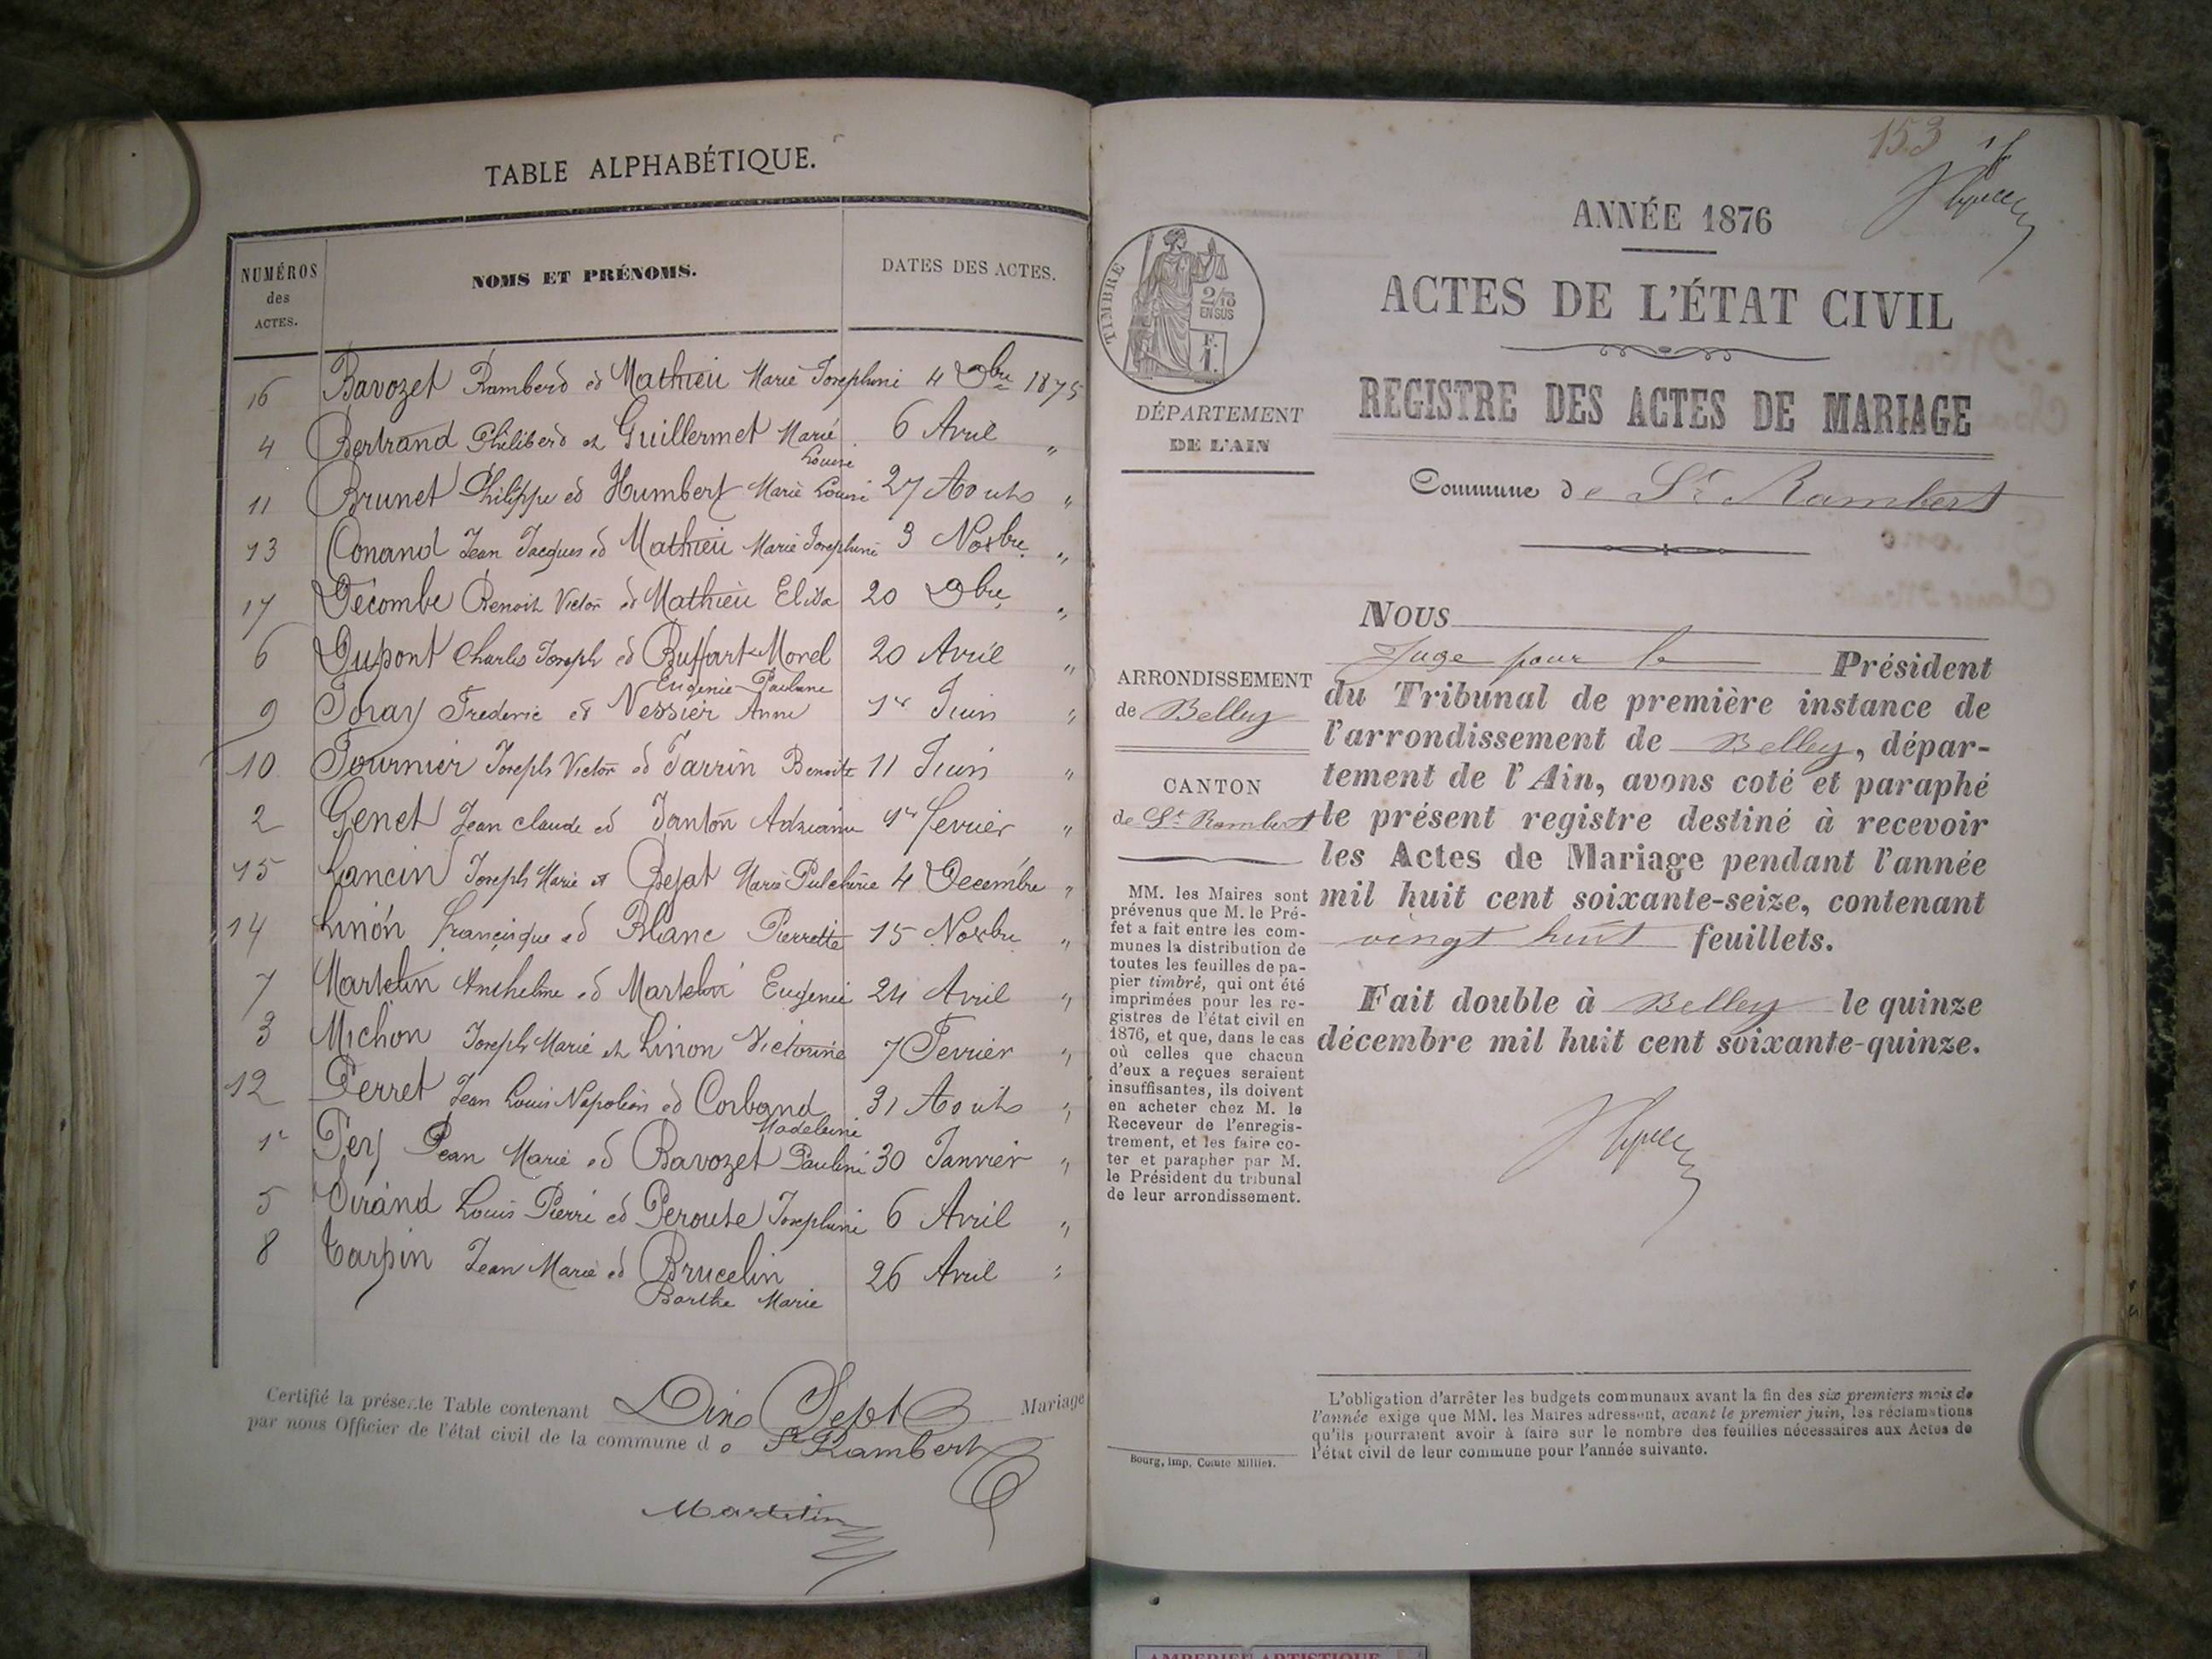 TABLE ALPHABÉTIQUE.
NUMÉROS
des
ACTES.
NOMS ET PRÉNOMS.
DATES DES ACTES.
16 Bavozet Ramberd et Mathieu Marie Josephine 4 Xbre 1875
4 Bertrand Philiberd et Guillermet Marie 6 Avril "
Louise
11 Brunet Philippe et Humbert Marie Louise 27 Aouts "
13 Conand Jean Jacques et Mathieu Marie Josephine 3 Novbre "
17 Décombe Benoit Victor et Mathieu Elisa 20 Xbre "
6 Dupont Charles Joseph et Buffart-Morel 20 Avril "
Eugenie Pauline
9 Foray Frederic et Vessier Anne 1er Juin "
10 Fournier Joseph Victor et Tarrin Benoite 11 Juin "
2 Genet Jean claude et Janton 1er fevrier "
15 Lancin Joseph Marie et Bejat Marie Pulcherie 4 Decembre "
14 Linon françisque et Blanc Pierrette 15 Novbre "
7 Martelin Anthelme et Martelin Eugenie 24 Avril "
3 Michon Joseph Marie et Linon Victorine 7 Fevrier "
12 Perret Jean Louis Napoléon et Corband 31 Aouts "
Madeleine
1r Pey Jean Marie et Bavozet Pauline 30 Janvier "
5 Sirand Louis Pierre et Peroute Josephine 6 Avril "
8 Tarpin Jean Marie et Brucelin 26 Avril "
Barthe Marie
Certifié la présente Table contenant Dix Sept Mariage
par nous Officier de l'état civil de la commune de St Rambert
Martelin
153
1er
ANNÉE 1876
ACTES DE L'ÉTAT CIVIL
REGISTRE DES ACTES DE MARIAGE
Commune de St Rambert
TIMBRE
2/10
EN SUS
F.
1.
DÉPARTEMENT
DE L'AIN
ARRONDISSEMENT
de Belley
CANTON
de St Rambert
MM. les Maires sont
prévenus que M. le Pré-
fet a fait entre les com-
munes la distribution de
toutes les feuilles de pa-
pier timbré, qui ont été
imprimées pour les re-
gistres de l'état civil en
1876, et que, dans le cas
où celles que chacun
d'eux a reçues seraient
insuffisantes, ils doivent
en acheter chez M. le
Receveur de l'enregis-
trement, et les faire co-
ter et parapher par M.
le Président du tribunal
de leur arrondissement.
Bourg, imp. Comte Milliet.
NOUS
Juge pour le Président
du Tribunal de première instance de
l'arrondissement de Belley, dépar-
tement de l'Ain, avons coté et paraphé
le présent registre destiné à recevoir
les Actes de Mariage pendant l'année
mil huit cent soixante-seize, contenant
vingt huit feuillets.
Fait double à Belley le quinze
décembre mil huit cent soixante-quinze.
L'obligation d'arrêter les budgets communaux avant la fin des six premiers mois de
l'année exige que MM. les Maires adressent, avant le premier juin, les réclamations
qu'ils pourraient avoir à faire sur le nombre des feuilles nécessaires aux Actes de
l'état civil de leur commune pour l'année suivante.
AMBERIEU ARTISTIQUE